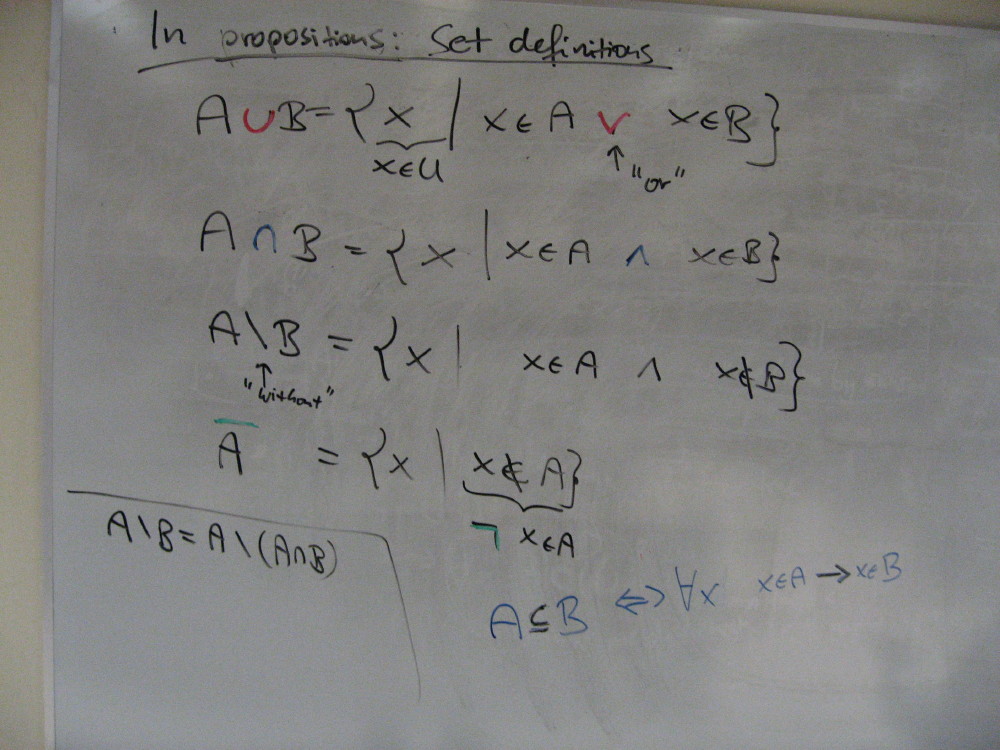 In propositions: Set definitions
A∪B = {x | x∈A ∨ x∈B}
x∈U
↑ "or"
A∩B = {x | x∈A ∧ x∈B}
A\B = {x | x∈A ∧ x∉B}
↑
"without"
A̅ = {x | x∉A}
¬ x∈A
A\B = A\(A∩B)
A⊆B ⇔ ∀x x∈A → x∈B